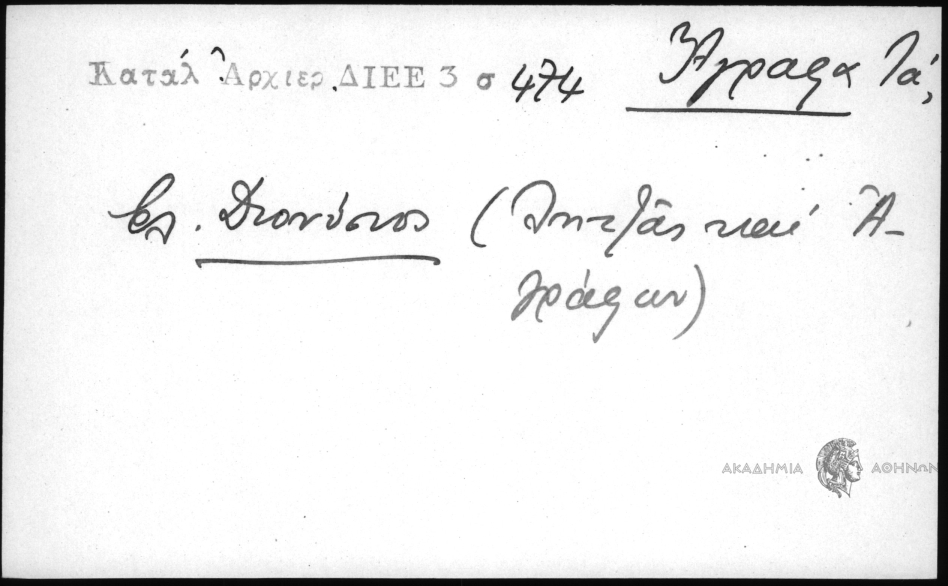 Καταλ Ἀρχιερ. ΔΙΕΕ 3 σ 474 Ἄγραφα Τά,
Ἐπ. Διονύσιος ( Λητζᾶς καί Ἀ-
γράφων)
ΑΚΑΔΗΜΙΑ ΑΘΗΝΩΝ